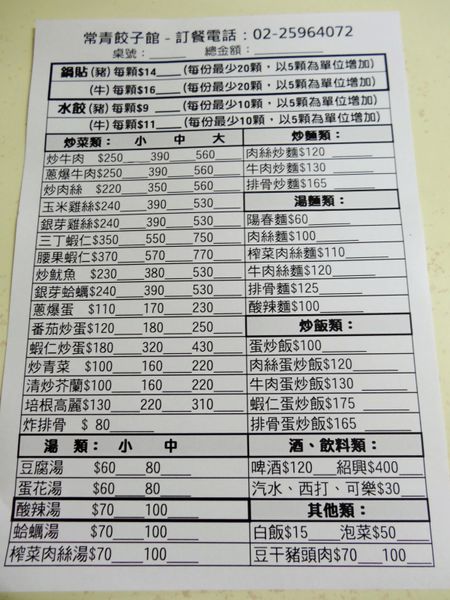 常青餃子館 - 訂餐電話：02-25964072
桌號：______ 總金額：__________
鍋貼(豬)每顆$14____(每份最少20顆，以5顆為單位增加)
(牛)每顆$16____(每份最少20顆，以5顆為單位增加)
水餃(豬)每顆$9____(每份最少10顆，以5顆為單位增加)
(牛)每顆$11____(每份最少10顆，以5顆為單位增加)
炒菜類： 小 中 大
炒牛肉 $250____390____560____
蔥爆牛肉$250____390____560____
炒肉絲 $220____350____560____
玉米雞絲$240____390____530____
銀芽雞絲$240____390____530____
三丁蝦仁$350____550____750____
腰果蝦仁$370____570____770____
炒魷魚 $230____380____530____
銀芽蛤蠣$240____390____530____
蔥爆蛋 $110____170____230____
番茄炒蛋$120____180____250____
蝦仁炒蛋$180____320____430____
炒青菜 $100____160____220____
清炒芥蘭$100____160____220____
培根高麗$130____220____310____
炸排骨 $ 80____
湯 類： 小 中
豆腐湯 $60____80____
蛋花湯 $60____80____
酸辣湯 $70____100____
蛤蠣湯 $70____100____
榨菜肉絲湯$70____100____
炒麵類：
肉絲炒麵$120____
牛肉炒麵$130____
排骨炒麵$165____
湯麵類：
陽春麵$60____
肉絲麵$100____
榨菜肉絲麵$110____
牛肉絲麵$120____
排骨麵$125____
酸辣麵$100____
炒飯類：
蛋炒飯$100____
肉絲蛋炒飯$120____
牛肉蛋炒飯$130____
蝦仁蛋炒飯$175____
排骨蛋炒飯$165____
酒、飲料類：
啤酒$120____紹興$400____
汽水、西打、可樂$30____
其他類：
白飯$15____泡菜$50____
豆干豬頭肉$70____100____